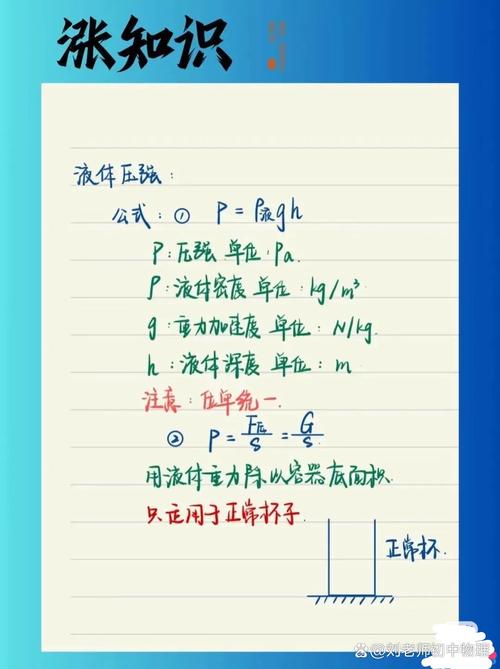 涨知识
液体压强：
公式：① P = ρ液gh
P：压强 单位：Pa.
ρ：液体密度 单位：kg/m³
g：重力加速度 单位：N/kg.
h：液体深度 单位：m
注意：单统一.
② P = F压/S = G/S
用液体重力除以容器底面积.
只适用于正常杯子.
正常杯.
@刘老师初中物理